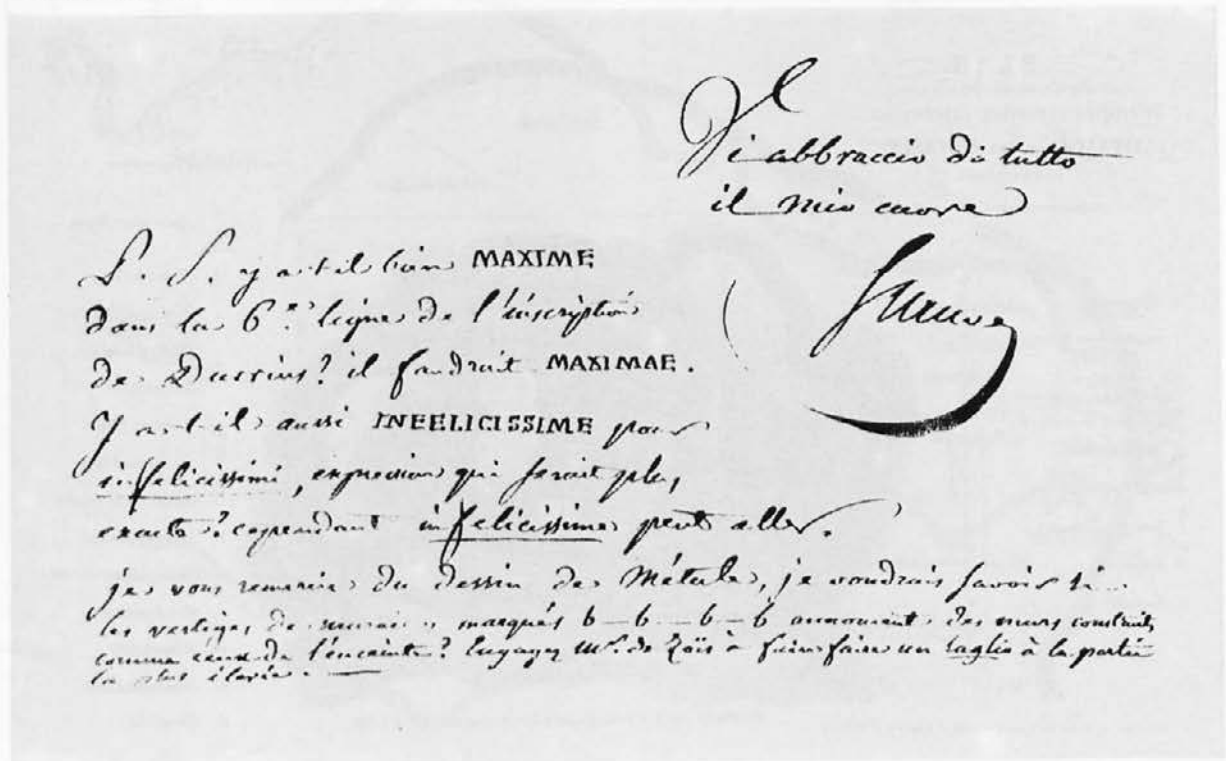 Vi abbraccio di tutto
il mio cuore
P. S. y a-t-il bien MAXIME
dans la 6.e ligne de l'inscription
de Dussius? il faudrait MAXIMAE.
Y a-t-il aussi INFELICISSIME pour
infelicissimi, expression qui serait plus
exacte? cependant infelicissime peut aller.
je vous remercie du dessin de Métule, je voudrais savoir si
les vestiges de murailles marqués b — b — b — b annoncent des murs construits
comme ceux de l'enceinte? Engagez Mr. de Zois à faire faire un taglio à la partie
la plus élevée.